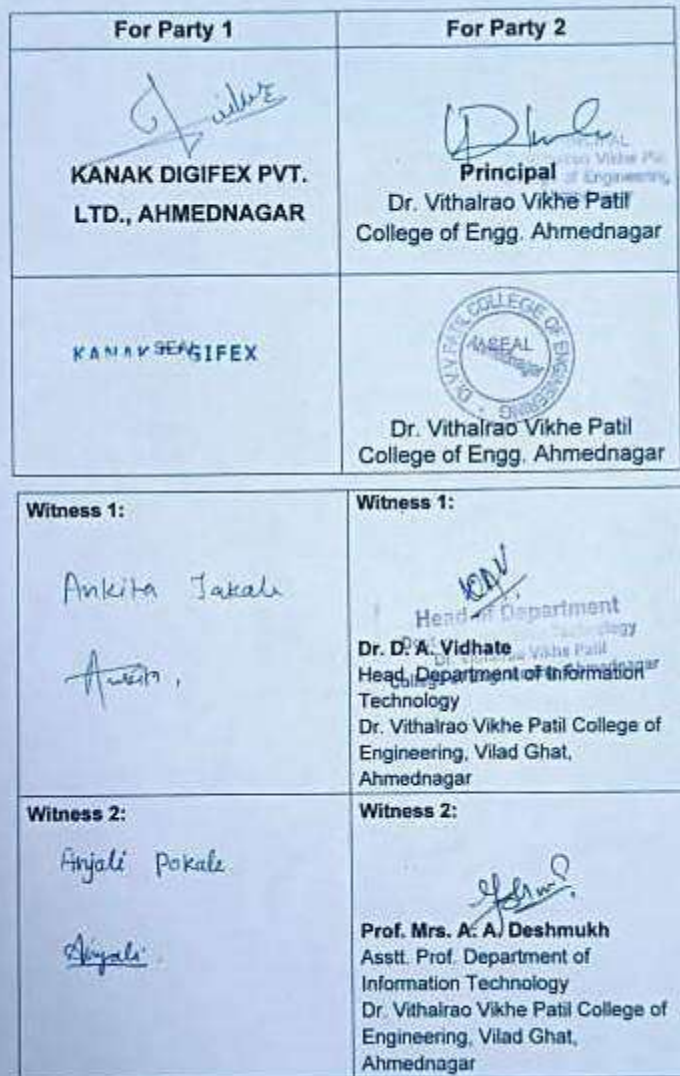 For Party 1
For Party 2
KANAK DIGIFEX PVT.
LTD., AHMEDNAGAR
PRINCIPAL
Principal
Dr. Vithalrao Vikhe Patil
College of Engg. Ahmednagar
KANAK SEAL GIFEX
Dr. V.V.PATIL COLLEGE OF ENGINEERING
SEAL
Ahmednagar
Dr. Vithalrao Vikhe Patil
College of Engg. Ahmednagar
Witness 1:
Ankita Takale
Ankita.
Witness 1:
Head of Department
Dr. D. A. Vidhate
Head, Department of Information
Technology
Dr. Vithalrao Vikhe Patil College of
Engineering, Vilad Ghat,
Ahmednagar
Witness 2:
Anjali Pokale
Anjali.
Witness 2:
Prof. Mrs. A. A. Deshmukh
Asstt. Prof. Department of
Information Technology
Dr. Vithalrao Vikhe Patil College of
Engineering, Vilad Ghat,
Ahmednagar